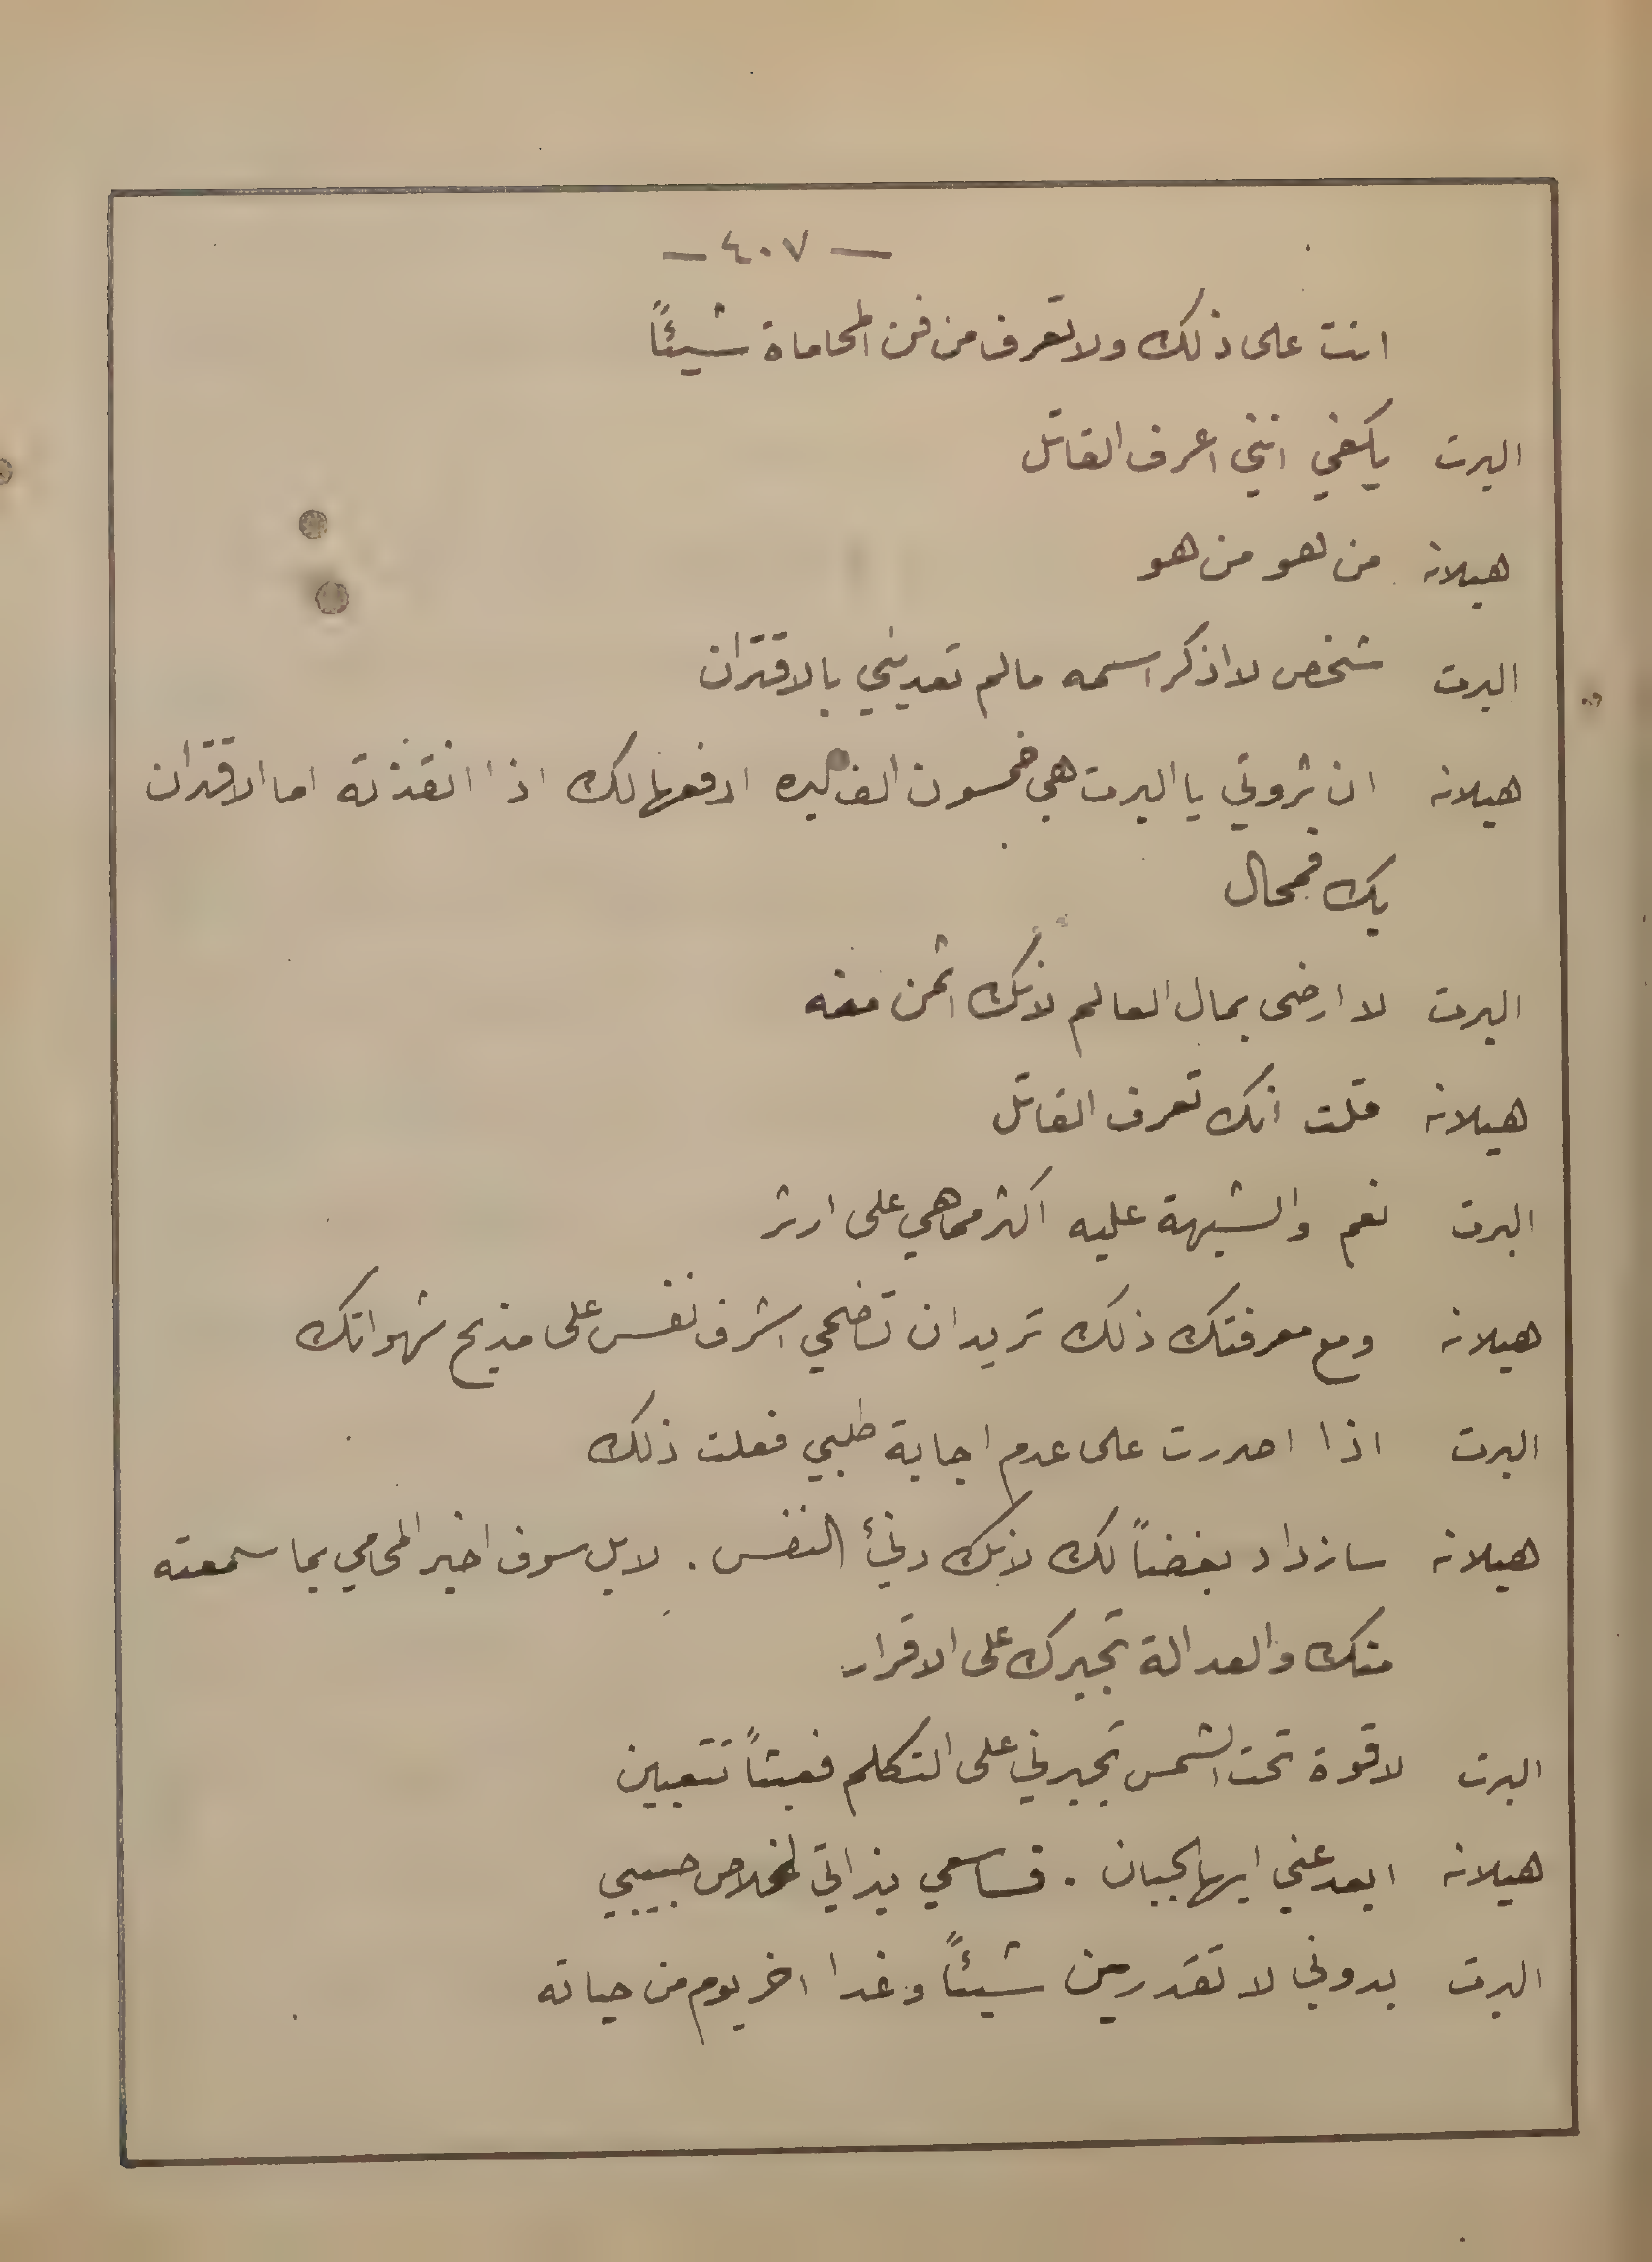 — ٤٠٧ —
انت على ذلك ولا تعرف من فن المحاماة شيئاً
البرت يكفي انني اعرف القاتل
هيلانه من هو من هو
البرت شخص لا اذكر اسمه ما لم تعديني بالاقتران
هيلانه ان ثروتي يا البرت هي خمسون الف ليره ادفعها لك اذا انقذته اما الاقتران
بك فمحال
البرت لا ارضى بمال العالم لانك اثمن منه
هيلانه قلت انك تعرف القاتل
البرت نعم والشبهة عليه اكثر مما هي على ارثر
هيلانه ومع معرفتك ذلك تريد ان تضحي اشرف نفس على مذبح شهواتك
البرت اذا اصررت على عدم اجابة طلبي فعلت ذلك
هيلانه سازداد بغضاً لك لانك دنئ النفس . لا بل سوف اخبر المحامي بما سمعته
منك والعدالة تجبرك على الاقرار
البرت لا قوة تحت الشمس تجبرني على التكلم فعبثاً تتعبين
هيلانه ابعد عني ايها الجبان . فساسعى بذاتي لخلاص حبيبي
البرت بدوني لا تقدرين شيئاً وغدا اخر يوم من حياته